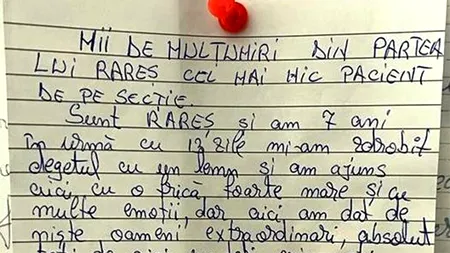 MII DE MULTUMIRI DIN PARTEA
LUI RARES CEL MAI MIC PACIENT
DE PE SECTIE.
Sunt RARES și am 7 ani
în urmă cu 13 zile mi-am zdrobit
degetul cu un lemn și am ajuns
aici, cu o frică foarte mare și cu
multe emoții, dar aici am dat de
niște oameni extraordinari, absolut